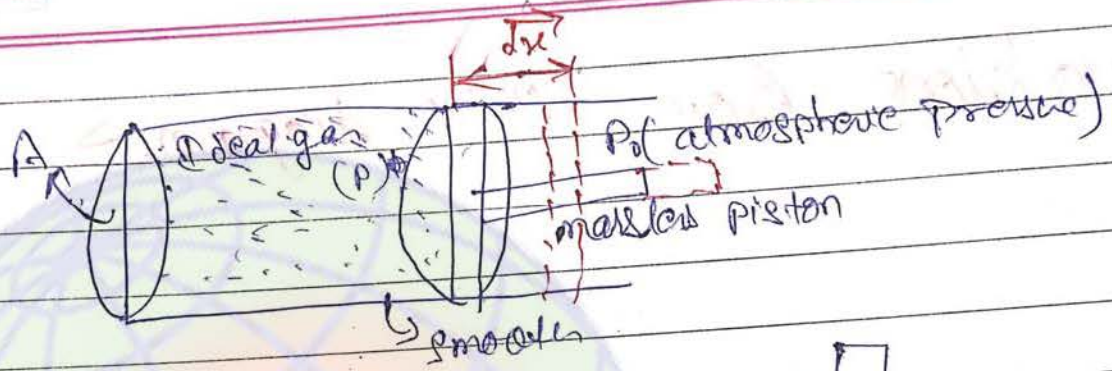 dx
A
Ideal gas
(P)
P₀ (atmosphere pressure)
massless piston
smooth